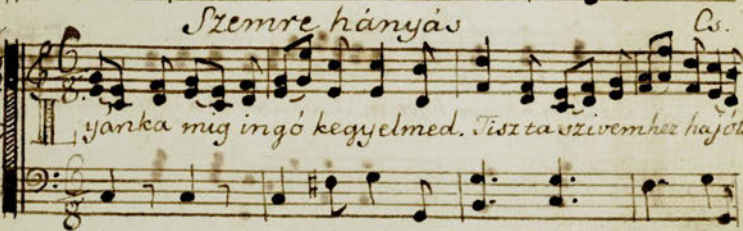 Szemre hányás Cs.
6
8
Lyánka mig ingó kegyelmed. Tiszta szivemhez hajólt
6
8